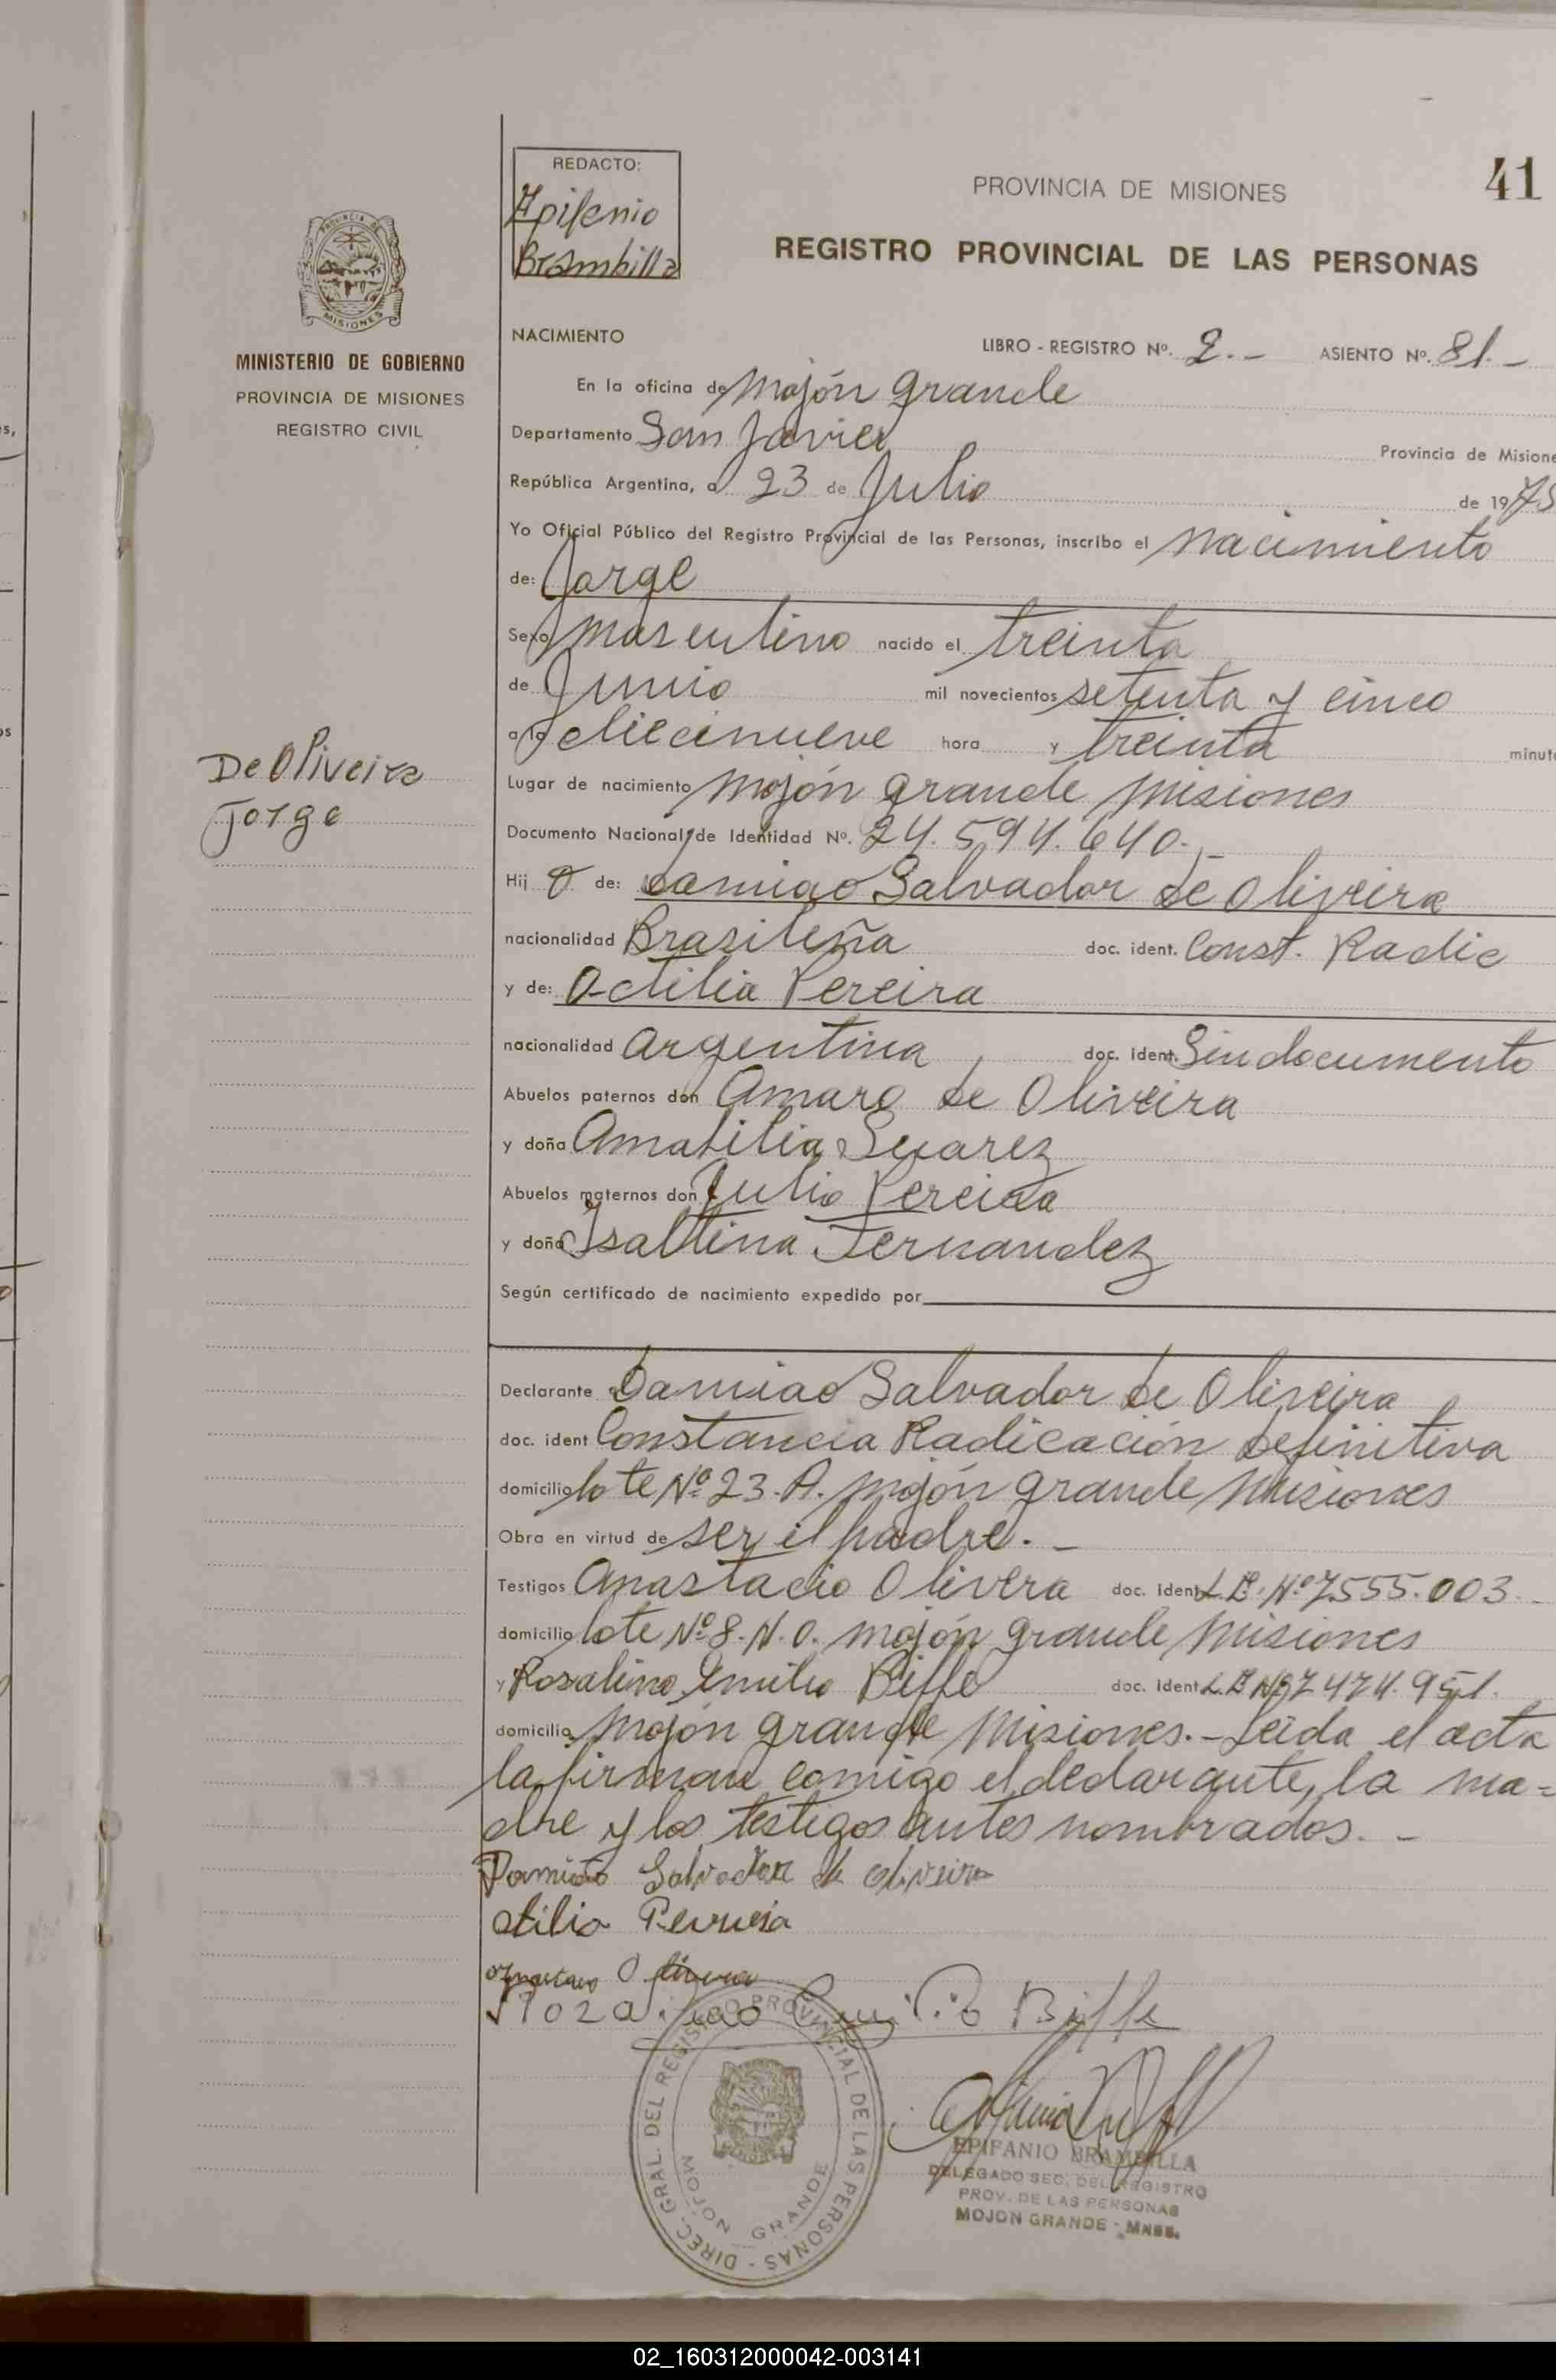 41
REDACTO:
Epifenio
Brambilla
PROVINCIA DE MISIONES
REGISTRO PROVINCIAL DE LAS PERSONAS
PROVINCIA DE
MISIONES
MINISTERIO DE GOBIERNO
PROVINCIA DE MISIONES
REGISTRO CIVIL
NACIMIENTO
LIBRO - REGISTRO Nº. 2.- ASIENTO Nº. 81.-
En la oficina de Mojón grande
Departamento San Javier Provincia de Misione
República Argentina, a 23 de Julio de 1975
Yo Oficial Público del Registro Provincial de las Personas, inscribo el nacimiento
de: Jorge
Sexo masculino nacido el treinta
de Junio mil novecientos setenta y cinco
a la diecinueve hora y treinta minut
De Oliveira
Jorge
Lugar de nacimiento Mojón grande Misiones
Documento Nacional de Identidad Nº. 24.594.640.-
Hij o de: Damiao Salvador de Oliveira
nacionalidad Brasileña doc. ident. Const. Radic
y de: Octilia Pereira
nacionalidad argentina doc. ident. Sin documento
Abuelos paternos don Amaro de Oliveira
y doña Amabilia Suarez
Abuelos maternos don Julio Pereira
y doña Isaltina Fernandez
Según certificado de nacimiento expedido por
Declarante Damiao Salvador de Oliveira
doc. ident Constancia Radicación definitiva
domicilio lote Nº 23.A. Mojón grande Misiones
Obra en virtud de ser el padre.-
Testigos Anastacio Olivera doc. ident L.E. Nº 7555.003.-
domicilio lote Nº 8.N.O. mojón grande Misiones
y Rosalino Emilio Biffe doc. ident L.E Nº 7474.951.
domicilio Mojón grande Misiones.- Leida el acta
la firman comigo el declarante, la ma=
dre y los testigos antes nombrados.-
Damião Salvador de oliveira
otilia Pereria
Olivera
Emilio Biffe
DIREC. GRAL. DEL REGISTRO PROVINCIAL DE LAS PERSONAS -
MOJON GRANDE
EPIFANIO BRAMBILLA
DELEGADO SEC. DEL REGISTRO
PROV. DE LAS PERSONAS
MOJON GRANDE - MNES.
02_160312000042-003141